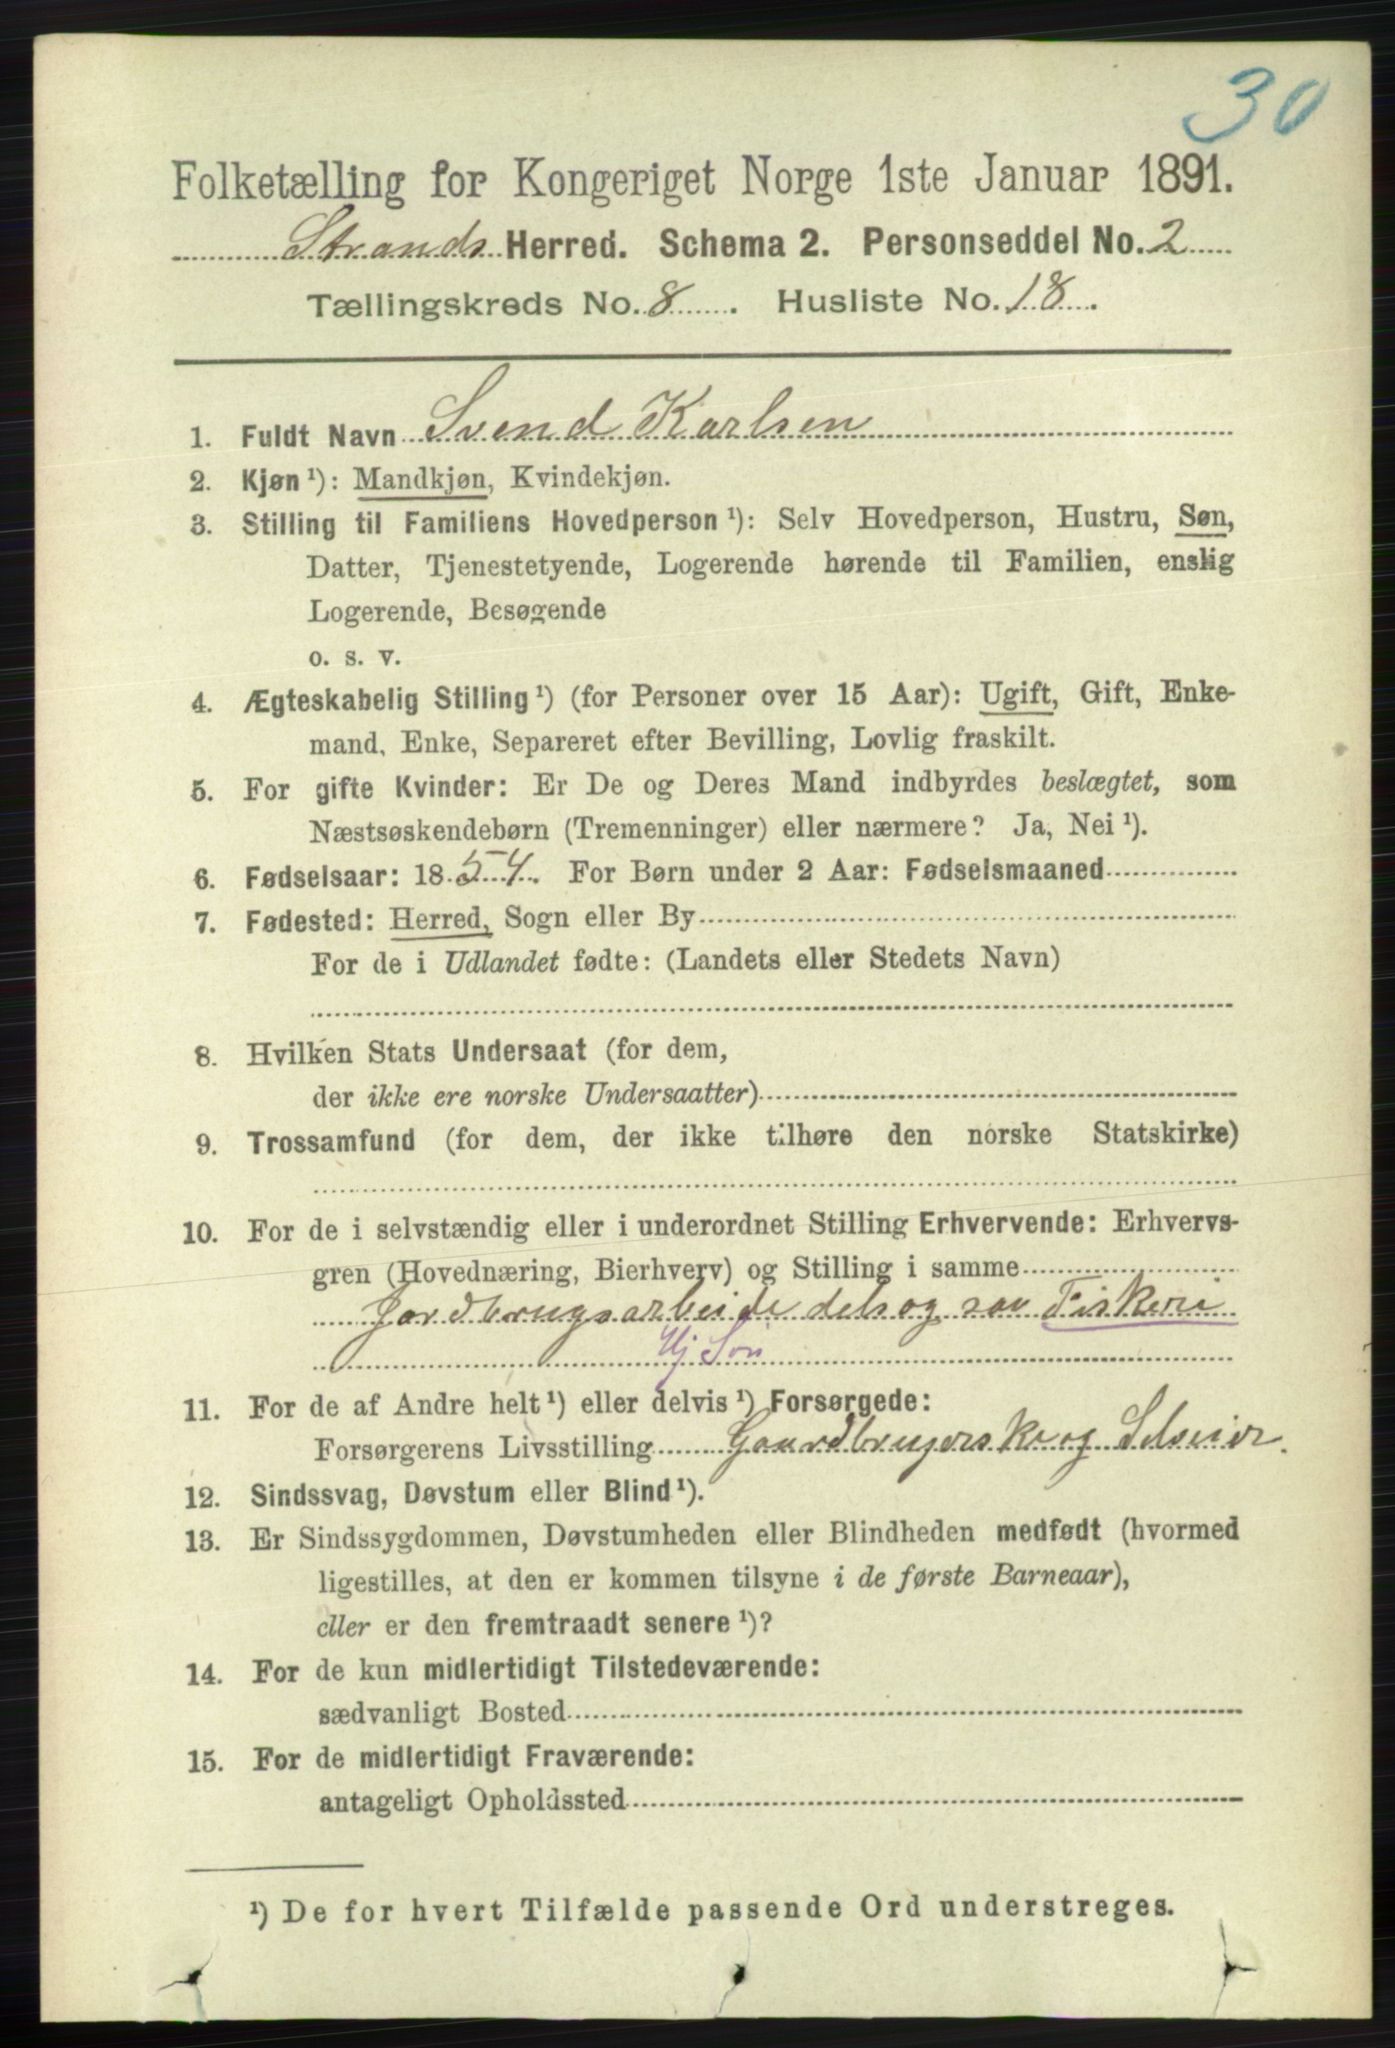 30
Folketælling for Kongeriget Norge 1ste Januar 1891.
Strands Herred. Schema 2. Personseddel No. 2
Tællingskreds No. 8. Husliste No. 18.
1. Fuldt Navn Svend Karlsen
2. Kjøn¹): Mandkjøn, Kvindekjøn.
3. Stilling til Familiens Hovedperson¹): Selv Hovedperson, Hustru, Søn,
Datter, Tjenestetyende, Logerende hørende til Familien, enslig
Logerende, Besøgende
o. s. v.
4. Ægteskabelig Stilling¹) (for Personer over 15 Aar): Ugift, Gift, Enke-
mand, Enke, Separeret efter Bevilling, Lovlig fraskilt.
5. For gifte Kvinder: Er De og Deres Mand indbyrdes beslægtet, som
Næstsøskendebørn (Tremenninger) eller nærmere? Ja, Nei¹).
6. Fødselsaar: 1854. For Børn under 2 Aar: Fødselsmaaned
7. Fødested: Herred, Sogn eller By
For de i Udlandet fødte: (Landets eller Stedets Navn)
8. Hvilken Stats Undersaat (for dem,
der ikke ere norske Undersaatter)
9. Trossamfund (for dem, der ikke tilhøre den norske Statskirke)
10. For de i selvstændig eller i underordnet Stilling Erhvervende: Erhvervs-
gren (Hovednæring, Bierhverv) og Stilling i samme
Jordbrugsarbeide dels og saa Fiskeri
Hj Søn
11. For de af Andre helt¹) eller delvis¹) Forsørgede:
Forsørgerens Livsstilling Gaardbrugerske og Selveier.
12. Sindssvag, Døvstum eller Blind¹).
13. Er Sindssygdommen, Døvstumheden eller Blindheden medfødt (hvormed
ligestilles, at den er kommen tilsyne i de første Barneaar),
eller er den fremtraadt senere¹)?
14. For de kun midlertidigt Tilstedeværende:
sædvanligt Bosted
15. For de midlertidigt Fraværende:
antageligt Opholdssted
¹) De for hvert Tilfælde passende Ord understreges.